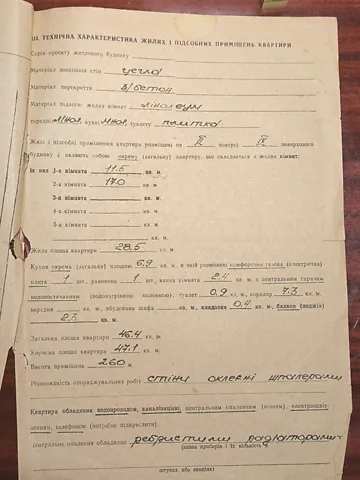 III. ТЕХНІЧНА ХАРАКТЕРИСТИКА ЖИЛИХ І ПІДСОБНИХ ПРИМІЩЕНЬ КВАРТИРИ
Серія проекту житлового будинку
Матеріал зовнішніх стін цегла
Матеріал перекриття з/бетон
Матеріал підлоги: жилих кімнат лінолеум
передні лінол. кухні лінол. туалету плитка
Жилі і підсобні приміщення квартири розміщені на II поверсі IV поверхового
будинку і являють собою окрему (загальну) квартиру, що складається з жилих кімнат:
із них 1-а кімната 11.5 кв. м
2-а кімната 17.0 кв. м
3-а кімната кв. м
4-а кімната кв. м
5-а кімната кв. м
кв. м
Жила площа квартири 28.5 кв. м
Кухня окрема (загальна) площею 6.9 кв. м, в якій розміщені комфорочна газова (електрична)
плита 1 шт, раковина 1 шт, ванна кімната 2.4 кв. м з центральним гарячим
водопостачанням (водонагрівною колонкою), туалет 0.9 кв. м, коридор 7.3 кв. м,
передня кв. м, вбудована шафа кв. м, кладова 0.4 кв. м, балкон (лоджія)
2.3 кв. м.
Загальна площа квартири 46.4 кв. м
Корисна площа квартири 47.1 кв. м
Висота приміщень 2.60 м
Різновидність опоряджувальних робіт стіни оклеєні шпалерами
Квартира обладнана водопроводом, каналізацією, центральним опаленням (пічним), електроосвіт-
ленням, телефоном (потрібне підкреслити).
Центральне опалення обладнане ребристими радіаторами
(назва приборів і їх кількість)
штуках або секціях)